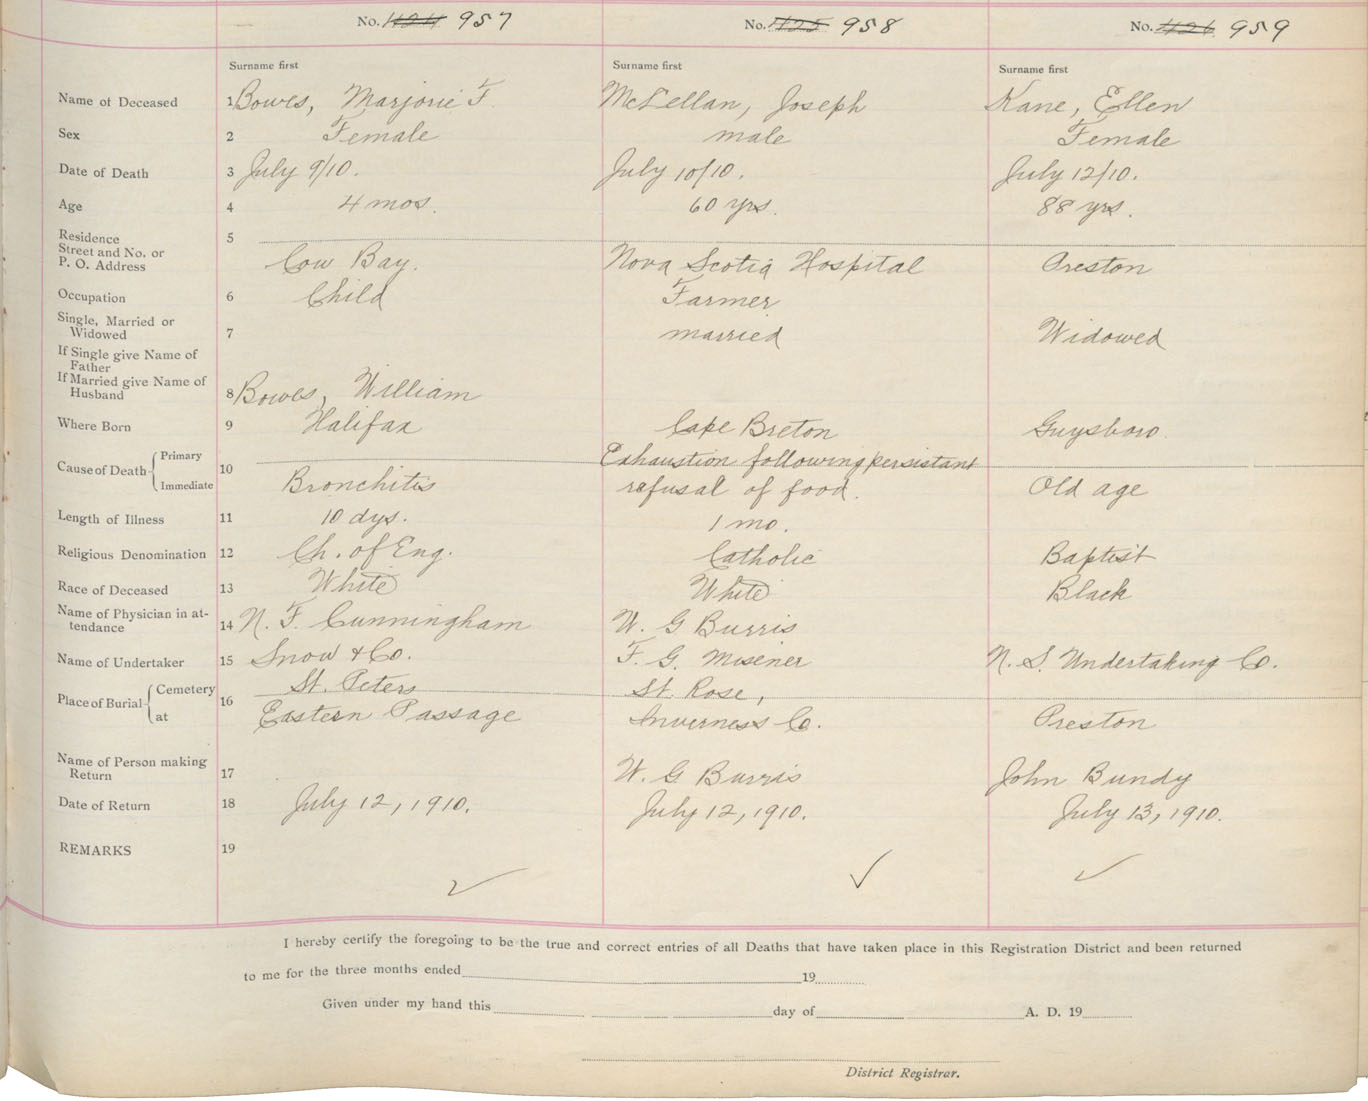 No. 1124 957 No. 1125 958 No. 1126 959
Surname first Surname first Surname first
Name of Deceased 1 Bowes, Marjorie F. McLellan, Joseph Kane, Ellen
Sex 2 Female male Female
Date of Death 3 July 9/10. July 10/10. July 12/10.
Age 4 4 mos. 60 yrs. 88 yrs.
Residence 5
Street and No. or
P. O. Address Cow Bay. Nova Scotia Hospital Preston
Occupation 6 Child Farmer
Single, Married or
Widowed 7 married Widowed
If Single give Name of
Father
If Married give Name of
Husband 8 Bowes, William
Where Born 9 Halifax Cape Breton Guysboro
Cause of Death Primary 10 Exhaustion following persistant
Immediate Bronchitis refusal of food. Old age
Length of Illness 11 10 dys. 1 mo.
Religious Denomination 12 Ch. of Eng. Catholic Baptist
Race of Deceased 13 White White Black
Name of Physician in at-
tendance 14 N. F. Cunningham W. G Burris
Name of Undertaker 15 Snow & Co. F. G. Misener N. S. Undertaking Co.
Place of Burial Cemetery 16 St. Peters St. Rose,
at Eastern Passage Inverness Co. Preston
Name of Person making
Return 17 W. G Burris John Bundy
Date of Return 18 July 12, 1910. July 12, 1910. July 13, 1910.
REMARKS 19
I hereby certify the foregoing to be the true and correct entries of all Deaths that have taken place in this Registration District and been returned
to me for the three months ended 19
Given under my hand this day of A. D. 19
District Registrar.